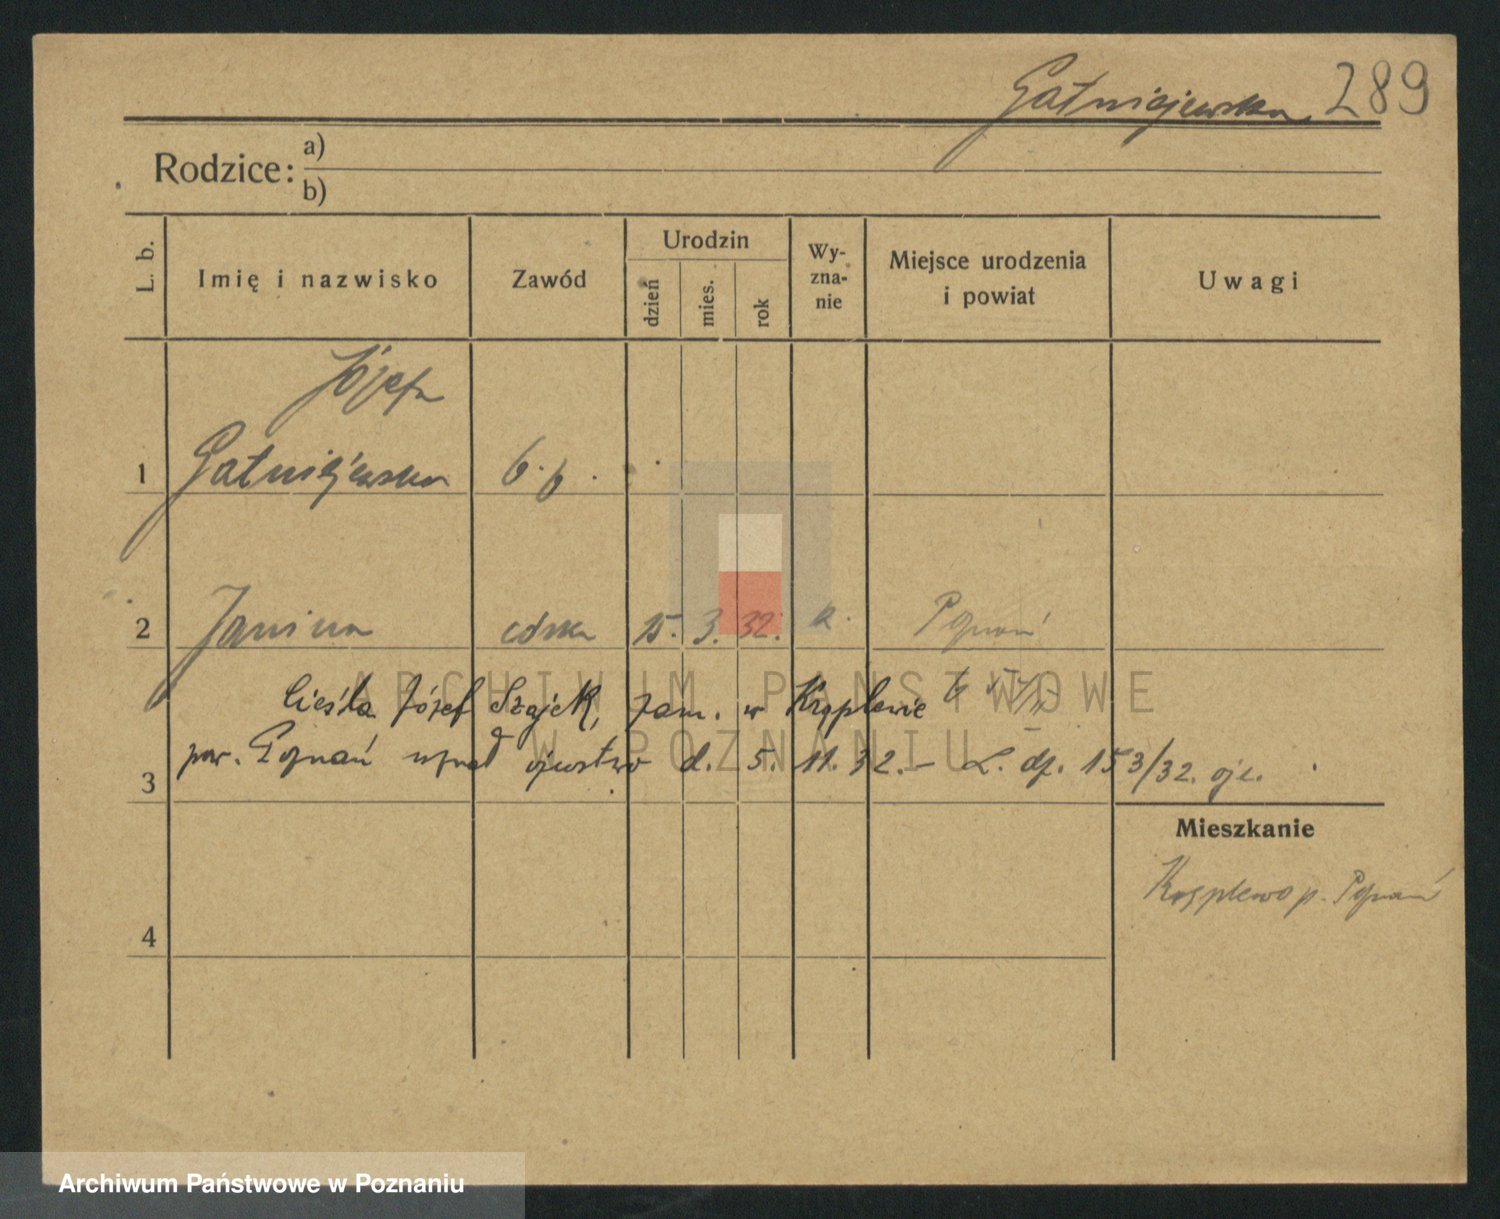 Gałniejewska 289
Rodzice: a)
b)
L. b.
Imię i nazwisko
Zawód
Urodzin
dzień
mies.
rok
Wy-
zna-
nie
Miejsce urodzenia
i powiat
Uwagi
Józefa
1 Gałniejewska b. b.
2 Janina córka 15. 3. 32. k. Poznań
Cieśla Józef Szajek, zam. w Krąplewie
pow. Poznań uznał ojcostwo d. 5. 11. 32. - L. dz. 153/32. ojc.
3
Mieszkanie
Krąplewo p. Poznań
4
ARCHIWUM PAŃSTWOWE
W POZNANIU
Archiwum Państwowe w Poznaniu